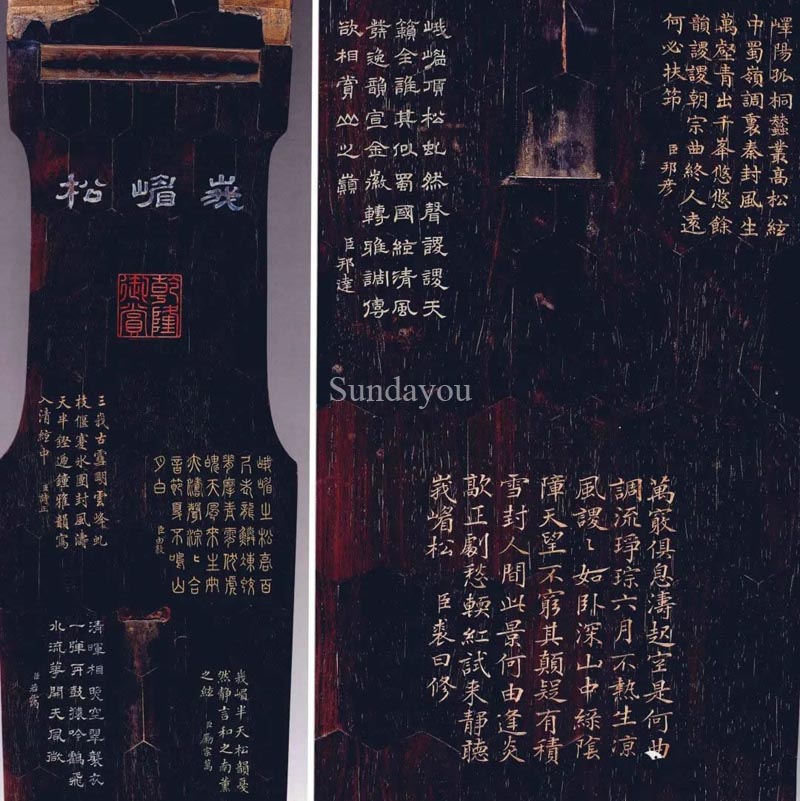 峩嵋松
乾隆御賞
三峩古雪明雲峰虬
枝偃蹇氷團封風濤
天半鏗過鍾雅韻寫
入清絃中
臣詩正
峨嵋之松高百
尺老龍鱗
摩青雲
魄天風來生
濤聲淙〻合
音 不鳴山
月白 臣由敦
清暉相映空翠襲衣
一彈再鼓猿吟鶴飛
水流華開天風微
臣若靄
峩嵋半天松韻戞
然靜言和之南薰
之絃 臣勵宗萬
嶧陽孤桐蠶叢高松絃
中蜀嶺調裏秦封風生
萬壑青出千峯悠悠餘
韻謖謖朝宗曲終人遠
何必扶筇 臣邦彥
峨嵋頂松虬然聲謖謖天
籟全誰其似蜀國絃清風
發逸韻宣金徽轉雅調傳
欲相賞山之巔 臣邦達
萬竅俱息濤起室是何曲
調流琤琮六月不熱生凉
風謖〻如卧深山中綠陰
障天望不窮其顛疑有積
雪封人間此景何由逢炎
歊正劇愁輭紅試來靜聽
峩嵋松 臣裘曰修
Sundayou